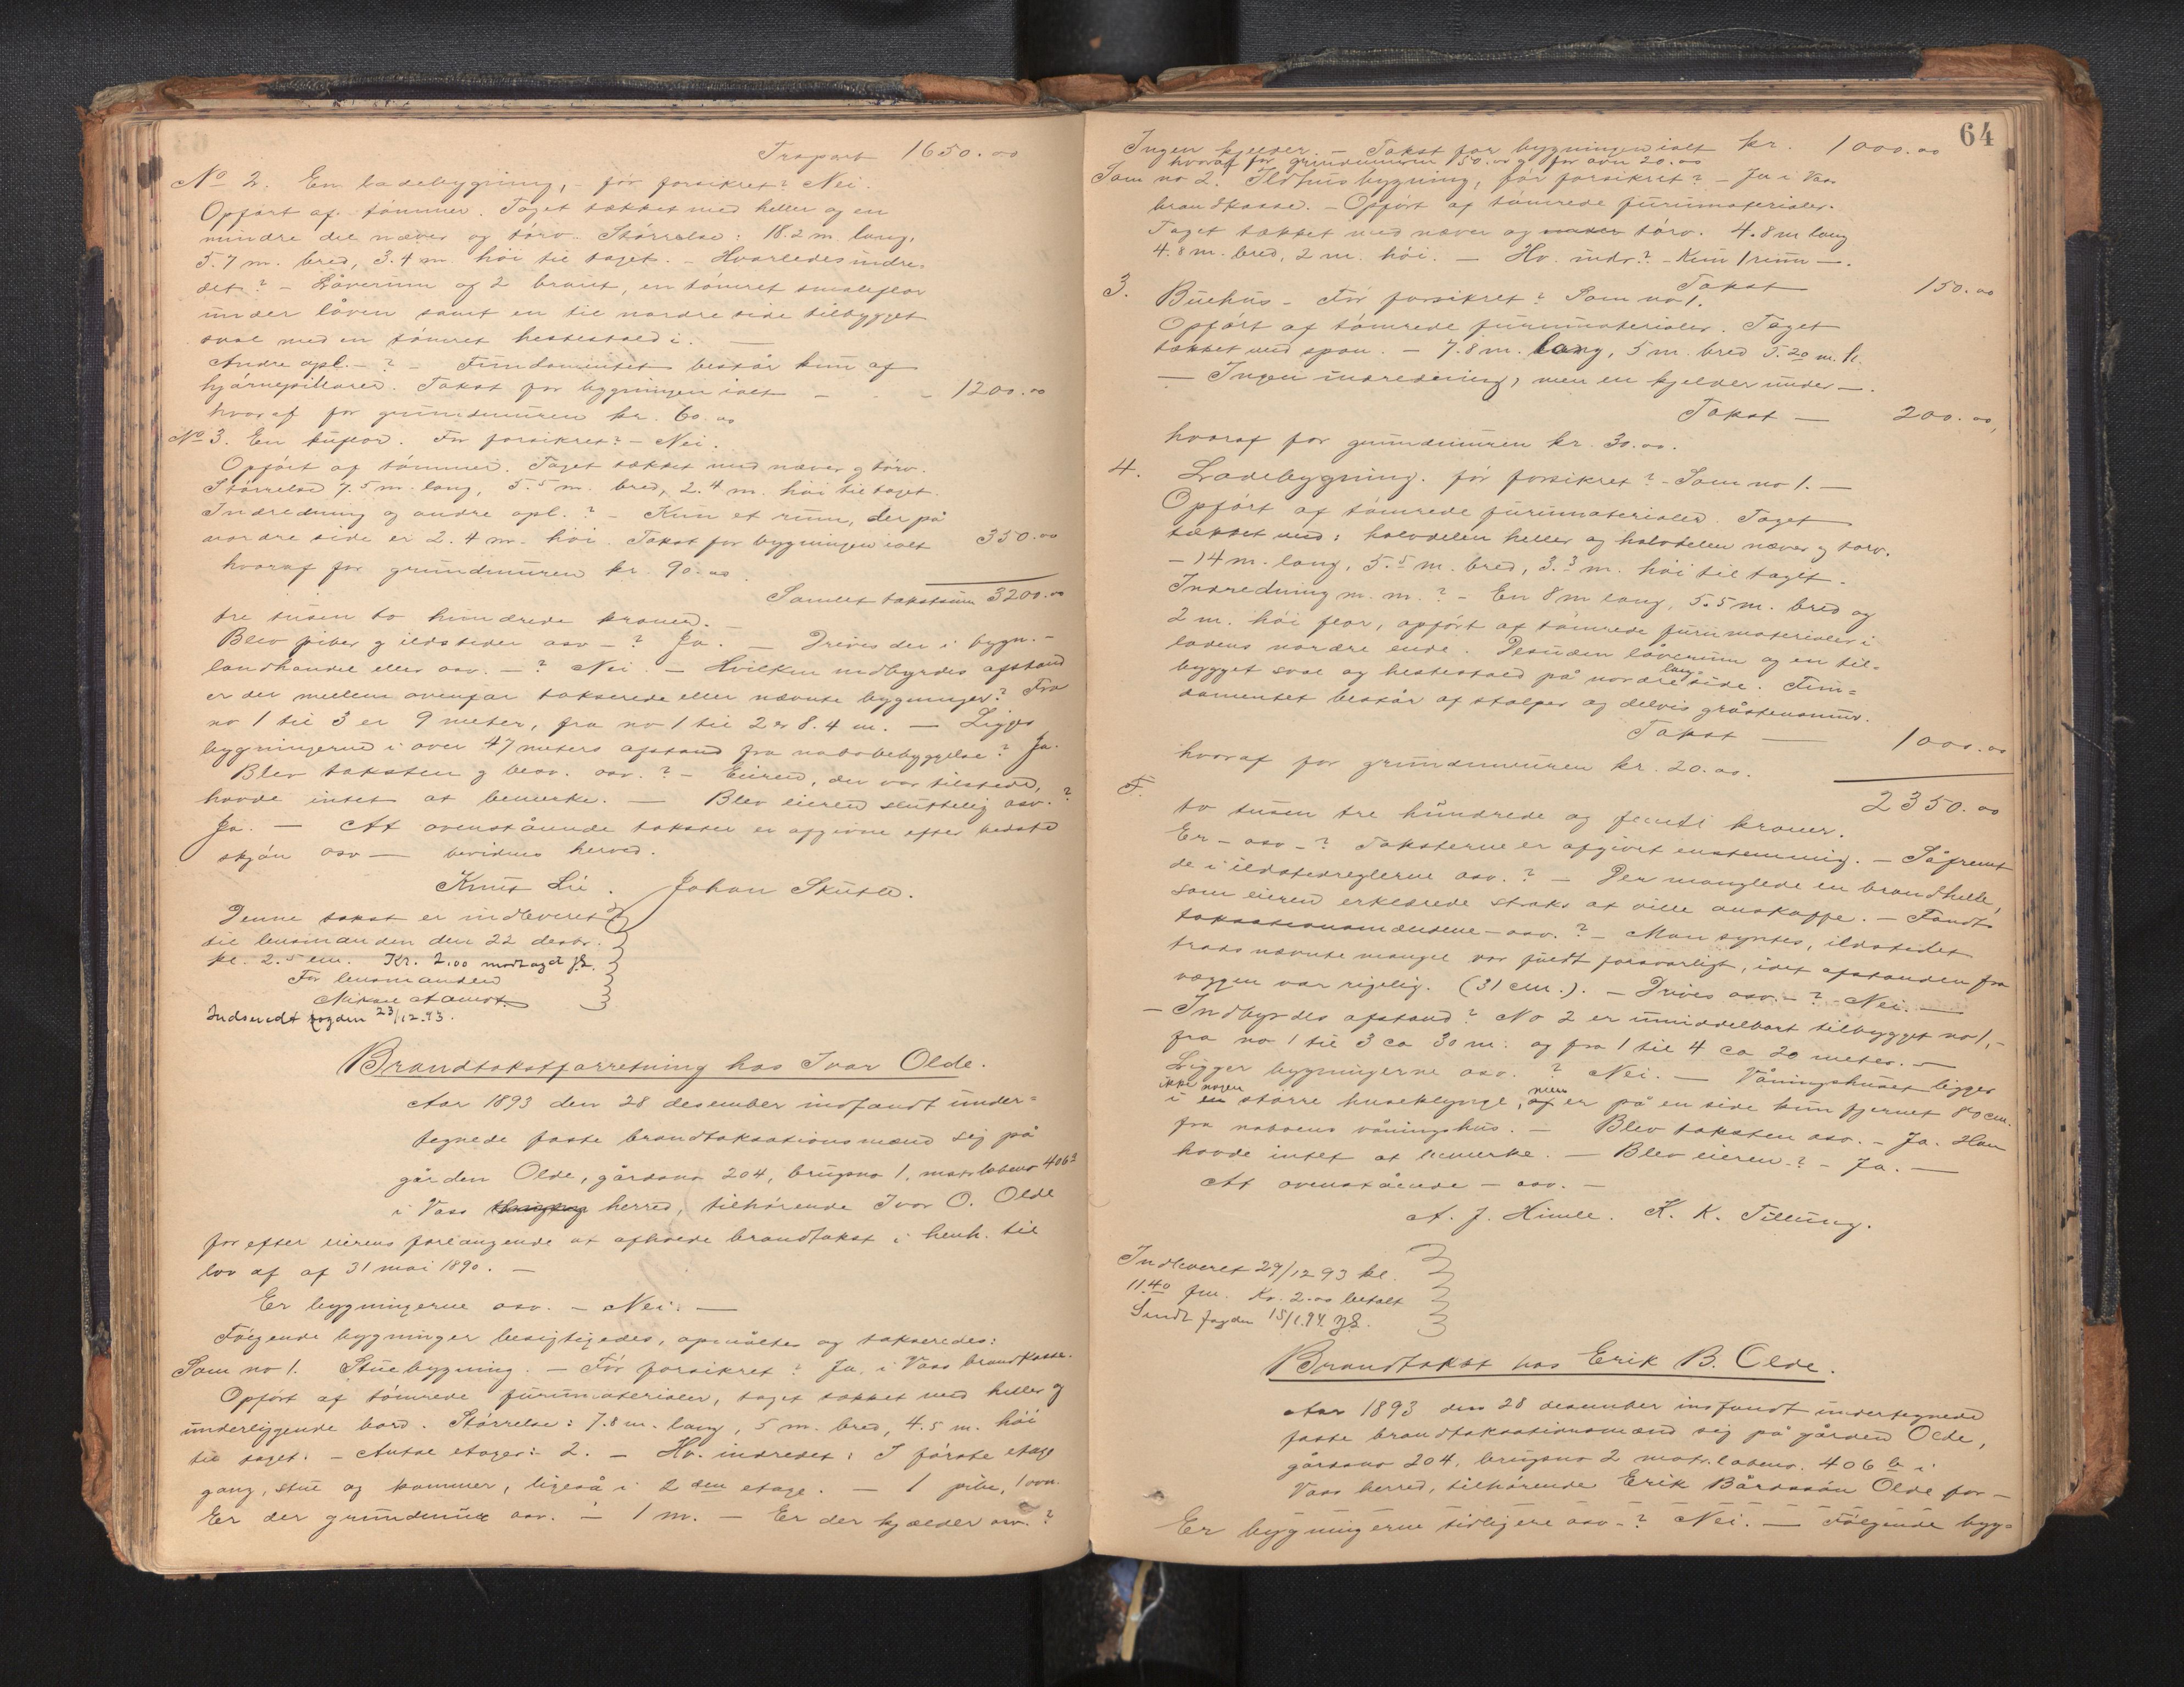 Trsport 1650.00
No 2. En ladebygning, - för forsikret? Nei.
Opfört af tömmer. Taget tækket med heller og en
mindre del næver og törv. Störrelse: 18.2 m. lang,
5.7 m. bred, 3.4 m. höi til taget. - Hvorledes indre-
det? - Låverum og 2 braut, en tömret smaleflor
under låven samt en til nordre side tilbygget
sval med en tömret hestestald i. —
Andre opl. - ? - Fundamentet består kun af
hjörnepillarer. Takst for bygningen ialt - - - 1200.00
hvoraf for grundmuren kr. 60.00
No 3. En kuflor. För forsikret? - Nei.
Opfört af tömmer. Taget tækket med næver og törv.
Störrelse 7.5 m. lang, 5.5 m. bred, 2.4 m. höi til taget.
Indredning og andre opl.? - Kun et rum, der på
nordre side er 2.4 m. höi. Takst for bygningen ialt 350.00
hvoraf for grundmuren kr. 90.00.
Samlet takstsum 3200.00
tre tusen to hundrede kroner.
Blev piber og ildsteder osv - ? Ja. - Drives der i bygn. -
landhandel eller osv. - ? Nei - Hvilken indbyrdes afstand
er der mellem ovenfor takserede eller nævnte bygninger? Fra
no 1 til 3 er 9 meter, fra no 1 til 2 er 8.4 m. — Ligger
bygningerne i over 47 meters afstand fra nabobebyggelse? Ja.
Blev taksten og besv. osv. ? - Eieren, der var tilstede,
havde intet at bemerke. — Blev eieren sluttelig osv. ?
Ja. — At ovenstående takster er afgivne efter bedste
skjön osv — bevidnes herved.
Knut Lie. Johan Skutle.
Denne takst er indleveret
til lensmanden den 22 desbr.
kl. 2.5 em. Kr. 2.00 modtaget
For lensmanden
Indsendt fogden 23/12.93.
Brandtakstforretning hos Ivar Olde.
Aar 1893 den 28 desember indfandt under-
tegnede faste brandtaksationsmænd sig på
gården Olde, gårdsno 204, brugsno 1, matr. løbeno 406a
i Vass herred, tilhörende Ivar O. Olde
for efter eierens forlangende at afholde brandtakst i henh. til
lov af af 31 mai 1890. —
Er bygningerne osv. - Nei. —
Fölgende bygninger besigtigedes, opmåltes og takseredes:
Som no 1. Stuebygning. - För forsikret? Ja, i Vass brandkasse.
Opfört af tömrede furumaterialer, taget tækket med heller og
underliggende bord. Störrelse: 7.8 m. lang, 5 m. bred, 4.5 m. höi
til taget. - Antal etager: 2. - Hv. indredet: I förste etage
gang, stue og kammer, ligeså i 2den etage. - 1 pibe, 1 ovn.
Er der grundmur osv. - 1 m. - Er der kjælder osv. ?
64
Ingen kjelder. - Takst for bygningen ialt kr. 1000.00
hvoraf for grundmuren 50.00 og for ovn 20.00
Som no 2. Ildhusbygning, för forsikret? - Ja i Vass
brandkasse. - Opfört af tömrede furumaterialer.
Taget tækket med næver og törv. 4.8 m lang
4.8 m. bred, 2 m. höi. - Hv. indr.? - Kun 1 rum —.
Takst 150.00
3. Buehus - För forsikret? Som no 1.
Opfört af tömrede furumaterialer. Taget
tækket med spon. - 7.8 m. lang, 5 m. bred 5.20 m. h.
- Ingen indredning, men en kjelder under —.
Takst — 200.00,
hvoraf for grundmuren kr. 30.00.
4. Ladebygning. för forsikret? - Som no 1. —
Opfört af tömrede furumaterialer. Taget
tækket med: halvdelen heller og halvdelen næver og torv.
- 14 m. lang, 5.5 m. bred, 3.3 m. höi til taget.
Indredning m. m. ? - En 8 m lang, 5.5 m. bred og
2 m. höi flor, opfört af tömrede furumaterialer i
ladens nordre ende. Desuden låverum og en til-
bygget sval og hestestald på nordre langside. Fun-
damentet består af stolper og delvis gråstensmur.
Takst — 1000.00
hvoraf for grundmuren kr. 20.00.
2350.00
F. to tusen tre hundrede og femti kroner.
Er - osv - ? Taksterne er afgivet enstemmig. - Såfremt
de i ildstedreglerne osv. ? - Der manglede en brandhelle,
som eieren erklærede straks at ville anskaffe. - Fandt
taksationsmændene - osv. ? - Man syntes, ildstedet
trods nævnte mangel var fuldt forsvarligt, idet afstanden fra
væggen var rigelig. (31 cm.). - Drives osv. - ? - Nei. —
- Indbyrdes afstand? No 2 er umiddelbart tilbygget no 1, -
fra no 1 til 3 ca 30 m. og fra 1 til 4 ca 20 meter. —
Ligger bygningerne osv. ? Nei. — Våningshuset ligger
ikke nogen men
i en större huseklynge, af er på en side kun fjernet 80 cm.
fra naboens våningshus. - Blev taksten osv. - Ja. Han
havde intet at bemerke. - Blev eieren? - Ja. —
At ovenstående - osv. -
A. J. Himle. K. K. Tillung.
Indleveret 29/12 93 kl.
11.40 fm. Kr. 2.00 betalt
Sendt fogden 15/1.94
Brandtakst hos Erik B. Olde.
Aar 1893 den 28 desember indfandt undertegnede
faste brandtaksationsmænd sig på gården Olde,
gårdsno 204, brugsno 2 matr. løbeno. 406 b i
Vass herred, tilhörende Erik Bårdssön Olde for —
Er bygningerne tidligere osv - ? Nei. — Fölgende byg-